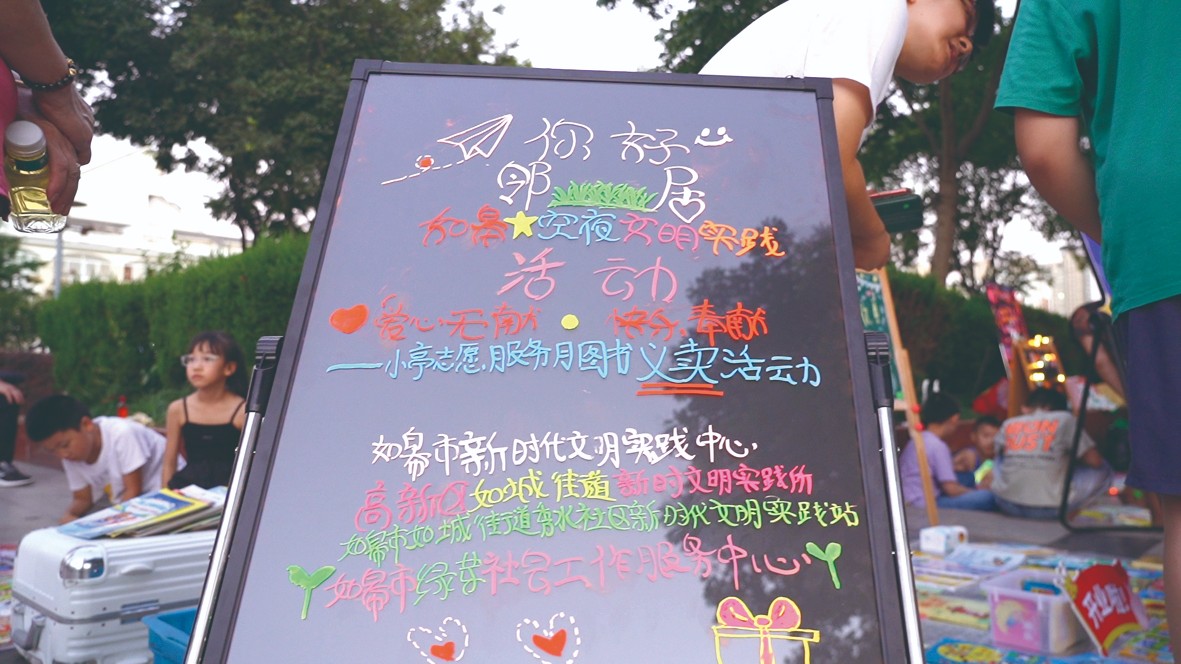 你好
邻居
如皋空夜文明实践
活动
爱心无献·快分.奉献
——小亭志愿.服务月图书义卖活动
如皋市新时代文明实践中心.
高新区如城街道新时文明实践所
如皋市如城街道秀水社区新时代文明实践站
如皋市绿芽社会工作服务中心
开业啦!